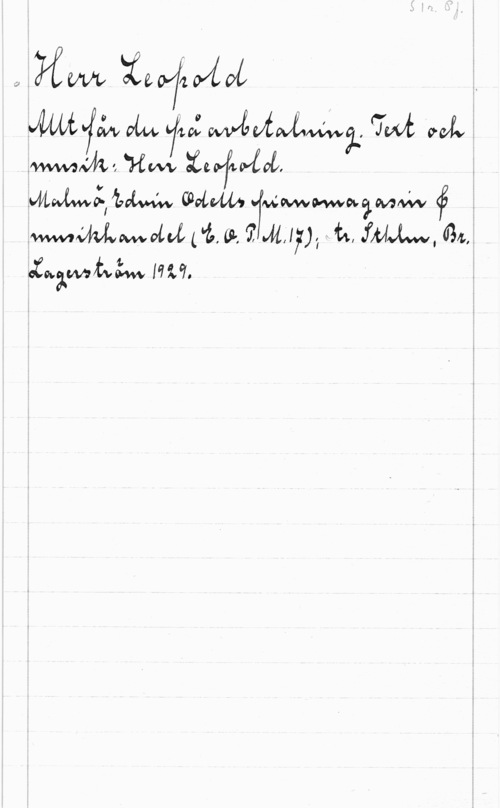 Str. Bf.
Herr Leopold
Allt får du på avbetalning. Text och
musik: Herr Leopold.
Malmö, Edvin Odells pianomagasin &
musikhandel (E. O. P. M. 17); tr. Sthlm, Br.
Lagerström 1929.